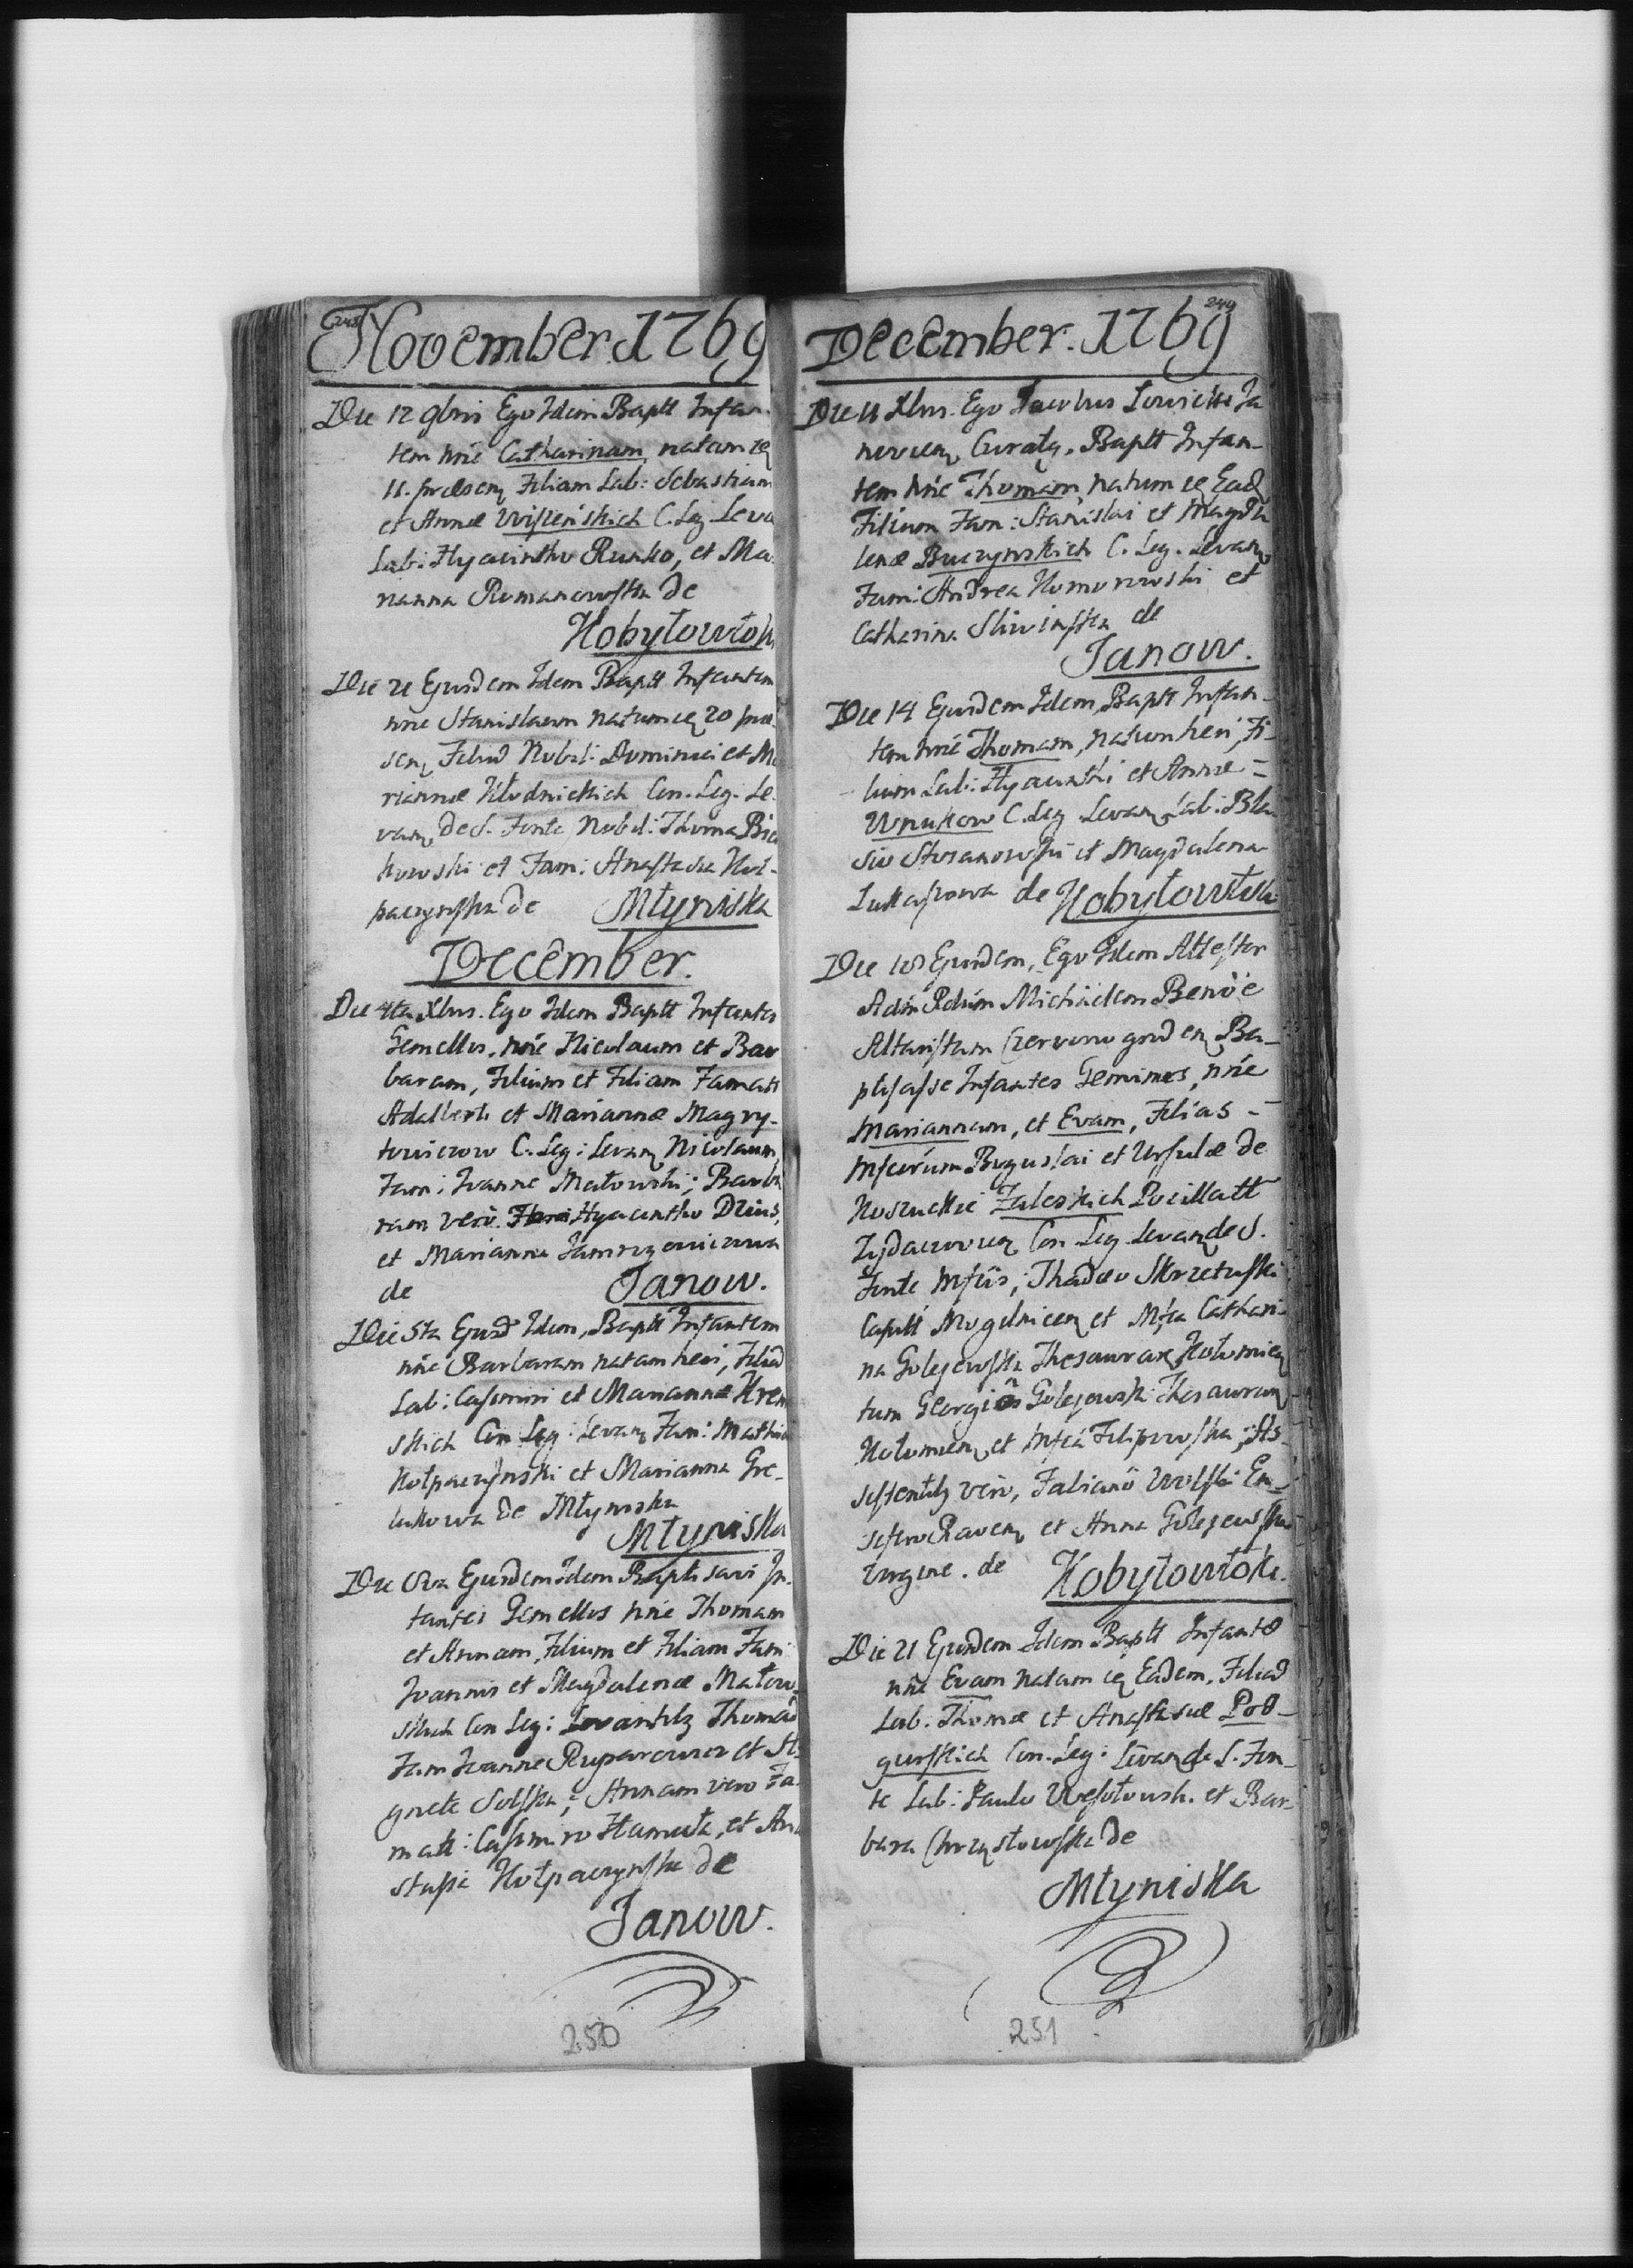 248
November. 1769
Die 12 9bris Ego Idem Baptt Infan-
tem nñe Catharinam, natam
11. præsen Filiam Lab: Sebastiani
et Annæ Wisżeńskich C. Leg. Leva
Lab: Hyacintho Runko, et Ma
rianna Romanowska de
Kobyłowłok
Die 21 Ejusdem Idem Baptt Infantem
nñe Stanislaum natum 20 præ
sen Filiũ Nobil: Dominici et Ma
riannæ Kłodnickich Con. Leg. Le
van de S. Fonte Nobil: Thoma Bie
kowski et Fam: Anastasia Koł-
paczynska de Młyniska
December.
Die 4ta Xbris. Ego Idem Baptt Infantes
Gemellos, nñe Nicolaum et Bar
baram, Filium et Filiam Famatt
Adalberti et Mariannæ Magry-
towiczow C. Leg: Levan Nicolaum
Fam: Joanne Małowski; Barba
ram verò Hyacintho Dzius,
et Marianna Jamrogowiczowa
de Janow.
Die 5ta Ejusd Idem, Baptt Infantem
nñe Barbaram natam heri, Filiã
Lab: Casimiri et Mariannæ Krem
skich Con Leg: Levan Fam: Mathia
Kołpaczynski et Marianna Gre-
lukowa de Młyniska
Młyniska
Die 8va Ejusdem Idem Baptisavi In
fantes Gemellos nñe Thomam
et Annam, Filium et Filiam Fam
Joannis et Magdalenæ Małow-
skich Con Leg: Levantib Thomã
Fam Joanne Ruparowicz et A
gnete Solska; Annam vero Fa-
matt: Casimiro Hamuta, et Ana
stasia Kołpaczynska de
Janow.
250
249
December. 1769
Die 11 Xbris. Ego Jacobus Lowicki Ja
novien Curat. Baptt Infan-
tem nñe Thomam, natum Ead
Filium Fam: Stanislai et Magda
lenæ Buczynskich C. Leg. Levan
Fam: Andrea Komorowski et
Catharina Sliwinska de
Janow.
Die 14 Ejusdem Idem, Baptt Infan-
tem nñe Thomam, natum heri, Fi-
lium Lab: Hyacinthi et Annæ =
Wnukow C. Leg Levan Lab: Bla
sio Stosanowski et Magdalena
Lukaszowa de Kobyłowłok
Die 18 Ejusdem, Ego Idem Attestor
Adm Rdum Michaelem Benoe
Altaristam Czerwonogrod en Ba-
ptisasse Infantes Geminas, nñe
Mariannam, et Evam, Filias =
Mfcorum Boguslai et Ursulæ de
Koszuckie Zaleskich Pocillatt
Zydaczovien Con Leg Levan de S.
Fonte Mfcis; Thadæo Skrzetuski
Capitt Mogelnicen et Mfca Cathari-
na Golejewska Thesaurar Kołomien
tum Georgio Golejewski Thesauran
Kołomien et Mfca Filipowska; As-
sistentib verò, Fabiano Wolski En-
sifero Raven et Anna Golejewska
Virgine. de Kobyłowłoki.
Die 21 Ejusdem Idem Baptt Infantẽ
nñe Evam natam Eadem, Filiã
Lab. Thomæ et Anastasiæ Pod-
gurskich Con. Leg: Levan de S. Fon-
te Lab: Paulo Wesołowski et Bar-
bara Chrząstowska de
Młyniska
251